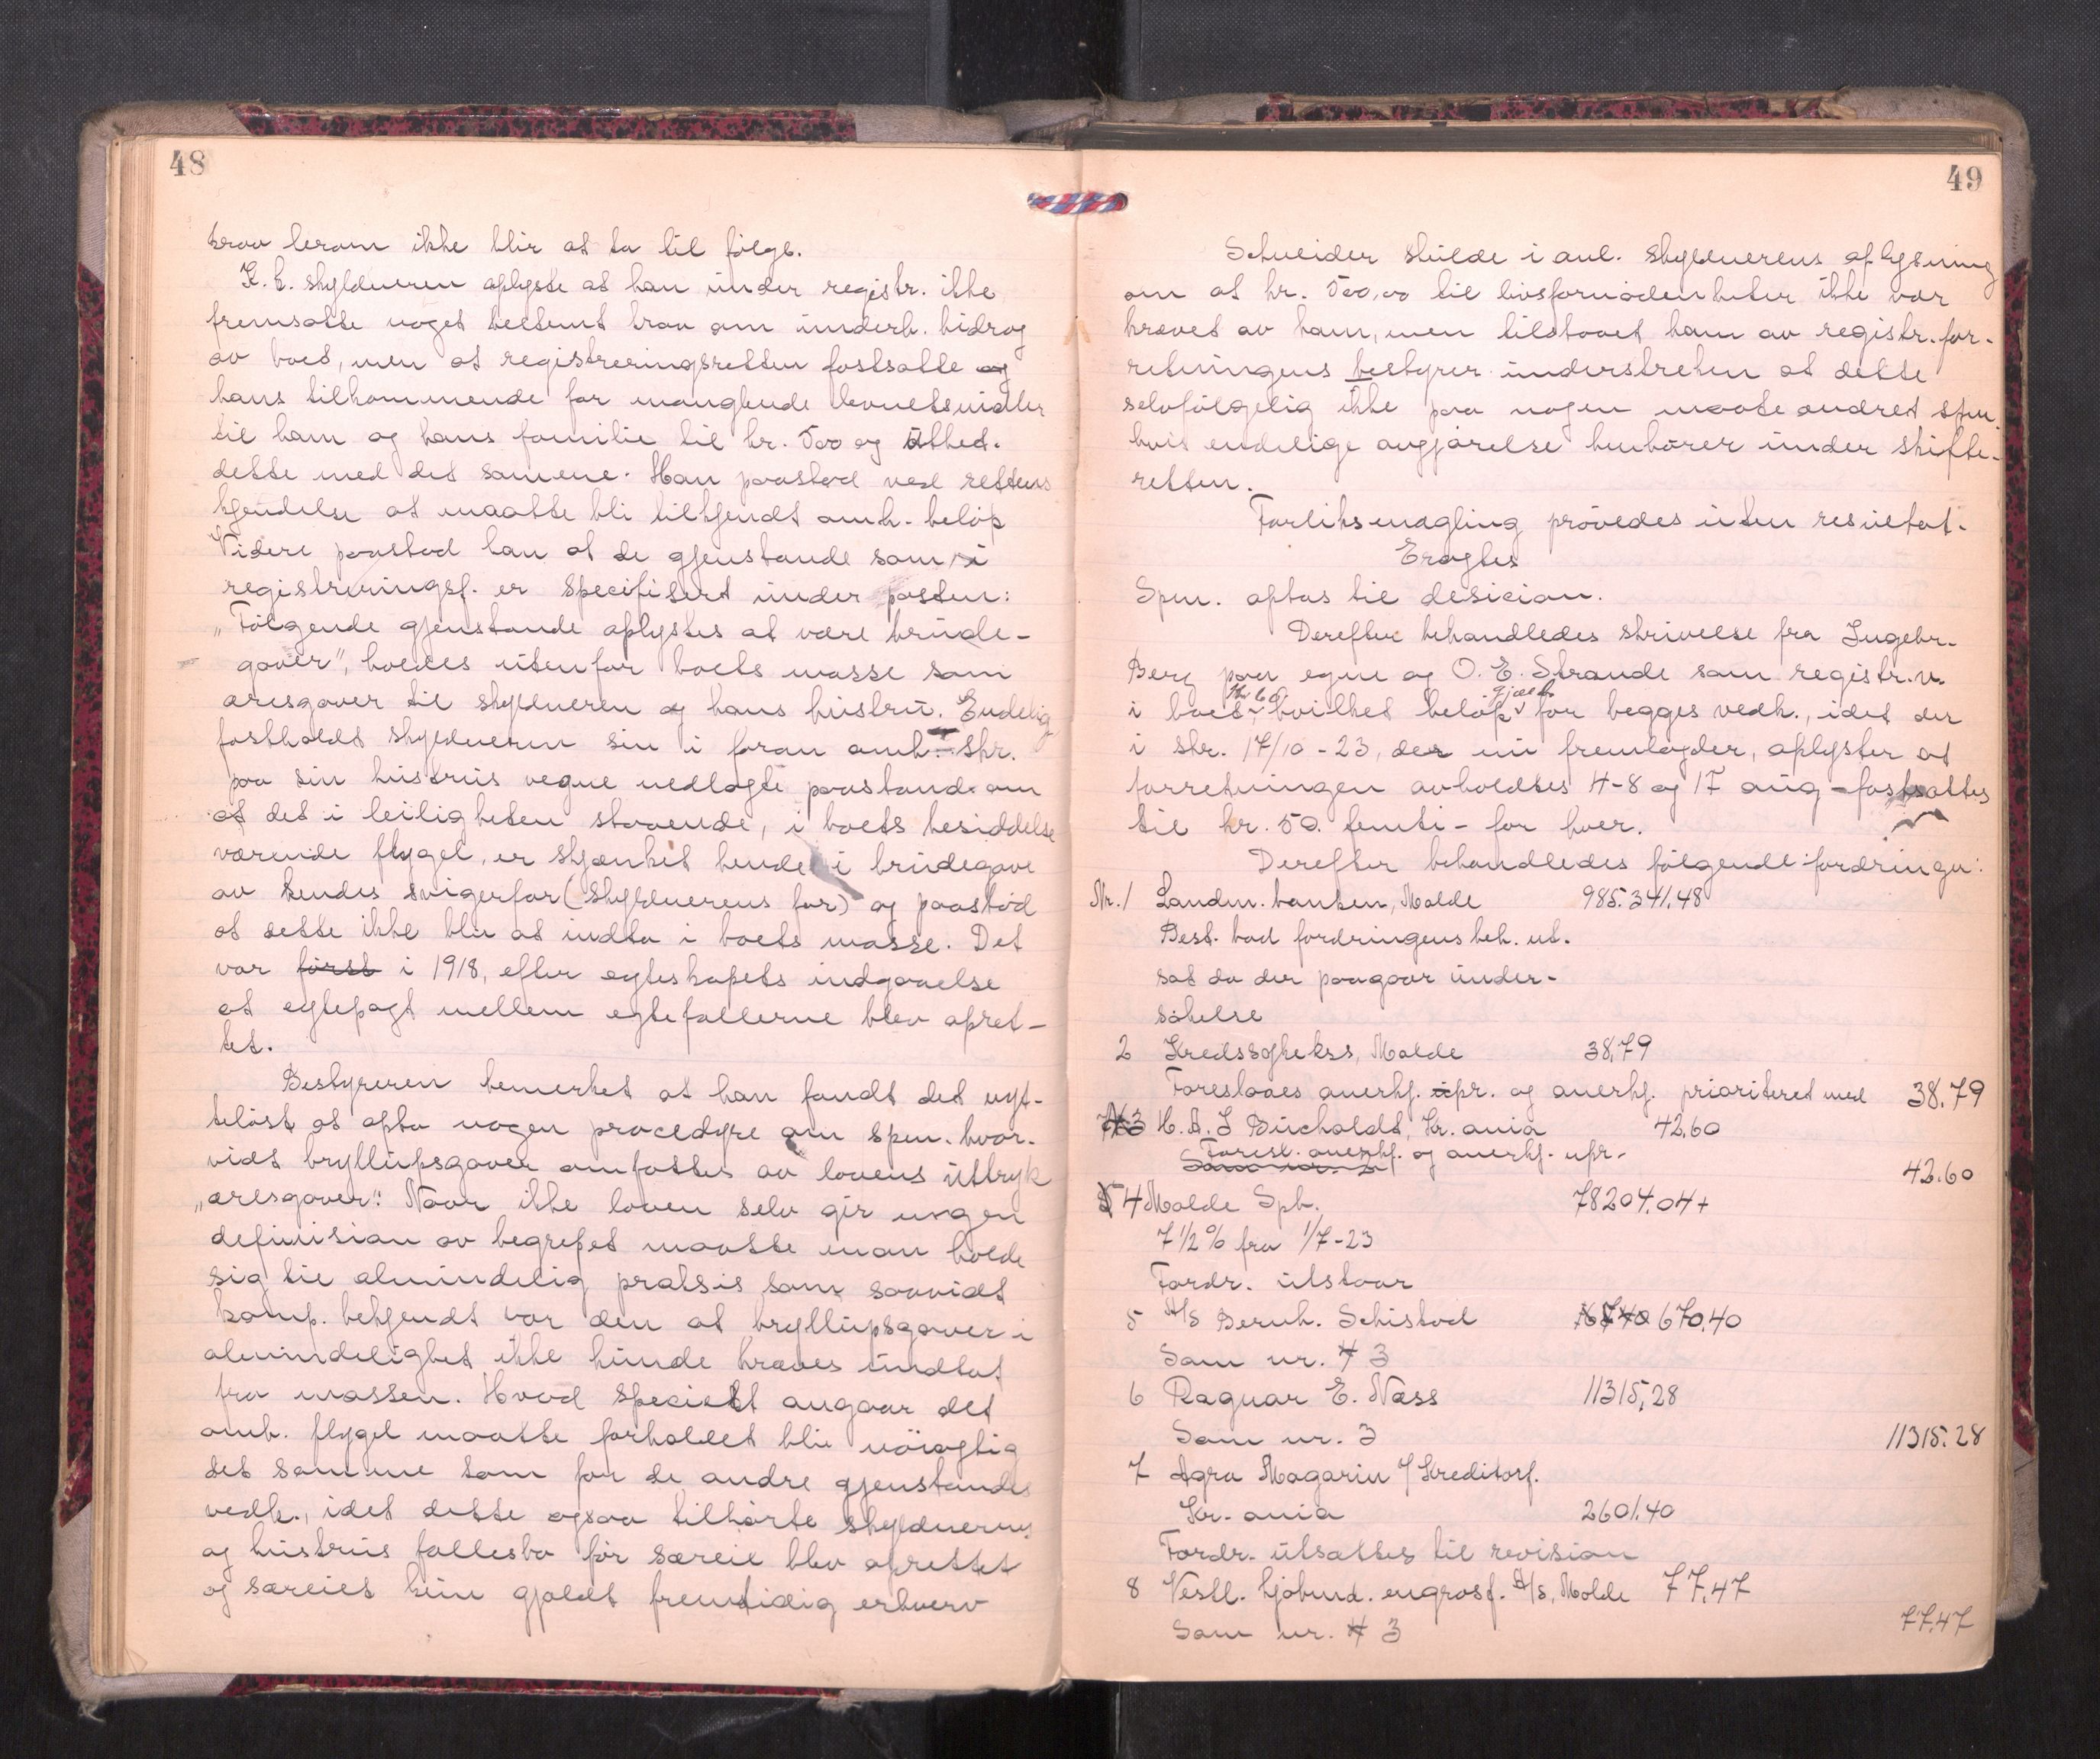 48
krav herom ikke blir at ta til følge.
K. h. skyldneren oplyste at han under registr. ikke
fremsatte noget bestemt krav om underh. bidrag
av boet, men at registreringsretten fastsatte og
hans tilkommende for manglende levnetsmidler
til ham og hans familie til kr. 500 og utbed.
dette med det samme. Han paastod ved rettens
kjendelse at maatte bli tilkjendt omh. beløp
Videre paastod han at de gjenstande som i
registreringsf. er specifisert under posten:
"Følgende gjenstande oplystes at være brude-
gaver", holdes utenfor boets masse som
æresgaver til skyldneren og hans hustru. Endelig
fastholdt skyldneren sin i foran omh. skr.
paa sin hustrus vegne nedlagte paastand om
at det i leiligheten staaende, i boets besiddelse
værende flygel, er skjænket hende i brudegave
av hendes svigerfar (skyldnerens far) og paastod
at dette ikke blir at indta i boets masse. Det
var først i 1918, efter egteskapets indgaaelse
at egtepagt mellem egtefællerne blev opret-
tet.
Bestyreren bemerket at han fandt det nyt-
teløst at opta nogen procedyre om spm. hvor-
vidt bryllupsgaver omfattes av lovens uttryk
"æresgaver". Naar ikke loven selv gir nogen
definision av begrepet maatte man holde
sig til almindelig praksis som saavidt
komp. bekjendt var den at bryllupsgaver i
almindelighet ikke kunde kræves undtat
fra massen. Hvad specielt angaar det
omh. flygel maatte forholdet bli nøiagtig
det samme som for de andre gjenstandes
vedk., idet dette ogsaa tilhørte skyldnerens
og hustrus fællesbo før særeie blev oprettet
og særeiet kun gjaldt fremtidig erhverv
49
Schneider skulde i anl. skyldnerens oplysning
om at kr. 500,00 til livsfornødenheter ikke var
krævet av ham, men tilstaaet ham av registr. for-
retningens bestyrer understreken at dette
selvfølgelig ikke paa nogen maate andret spm.
hvis endelige avgjørelse henhører under skifte-
retten.
Forliksmægling prøvedes uten resultat.
Eragtes
Spm. optas til desicion.
Derefter behandledes skrivelse fra Ingebr.
Berg paa egne og O. E. Strande som registr.v.
kr 60. gjælder
i boet hvilket beløp for begges vedk., idet der
i skr. 17/10-23, der nu fremlagder, oplyster at
forretningen avholdtes 4-8 og 17 aug - fastsattes
til kr. 50. femti - for hver.
Derefter behandledes følgende fordringer:
Nr. 1 Landm. banken, Molde 985.341.48
Best. bad fordringens beh. ut.
sat da der paagaar under-
søkelse
2 Kredssykekss, Molde 38,79
Foreslaaes anerkj. pr. og anerkj. prioriteret med 38.79
3 H. A. J Bucholdt, Kr.ania 42.60
Foresl. anerkj. og anerkj. upr.
42.60
4 Molde Spb. 78204.04+
7 1/2 % fra 1/7-23
Fordr. utstaar
5 A/S Bernh. Schistad 670.40
Som nr. 3
6 Ragnar E. Næss 11315,28
Som nr. 3 11315.28
7 Agra Magarin v/ Kreditorf.
Kr.ania 2601.40
Fordr. utsattes til revision
8 Vestl. kjøbmd. engrosf. A/s, Molde 77,47
Som nr. 3 77,47